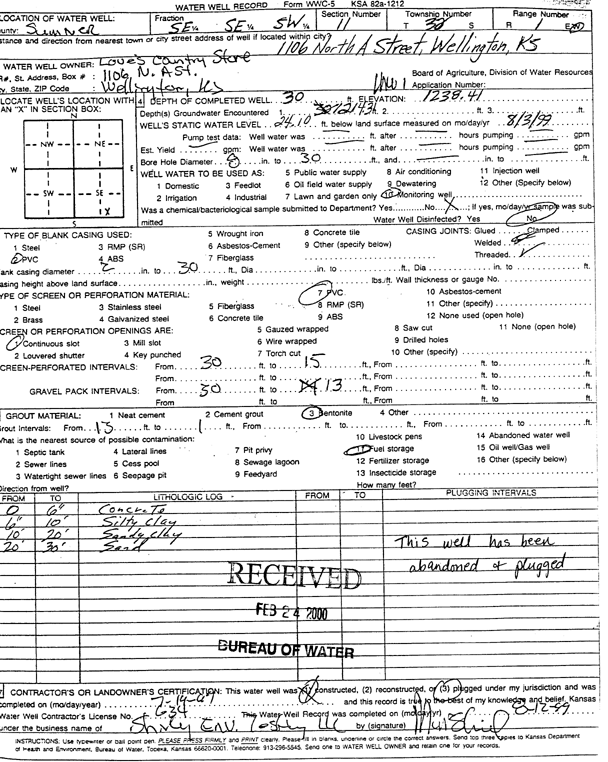 WATER WELL RECORD Form WWC-5 KSA 82a-1212
LOCATION OF WATER WELL: Fraction Section Number Township Number Range Number
Sumner SE ¼ SE ¼ SW ¼ 11 T 32 S R 1
stance and direction from nearest town or city street address of well if located within city?
1106 North A Street, Wellington, KS
WATER WELL OWNER: Love's Country Store
R#, St. Address, Box # : 1106 N. A St. Board of Agriculture, Division of Water Resources
y, State, ZIP Code : Wellington, KS Application Number:
LOCATE WELL'S LOCATION WITH 4 DEPTH OF COMPLETED WELL 30 ft. ELEVATION: 1238.41
AN "X" IN SECTION BOX: Depth(s) Groundwater Encountered 1 ft. 2. ft. 3. ft.
N WELL'S STATIC WATER LEVEL 24.10 ft. below land surface measured on mo/day/yr 8/3/99
Pump test data: Well water was ft. after hours pumping gpm
NW NE Est. Yield gpm: Well water was ft. after hours pumping gpm
Bore Hole Diameter 8 in. to 30 ft., and in. to ft.
W E WELL WATER TO BE USED AS: 5 Public water supply 8 Air conditioning 11 Injection well
SW SE 1 Domestic 3 Feedlot 6 Oil field water supply 9 Dewatering 12 Other (Specify below)
X 2 Irrigation 4 Industrial 7 Lawn and garden only 10 Monitoring well
S Was a chemical/bacteriological sample submitted to Department? Yes No X; If yes, mo/day/yr sample was sub-
mitted Water Well Disinfected? Yes No
TYPE OF BLANK CASING USED: 5 Wrought iron 8 Concrete tile CASING JOINTS: Glued Clamped
1 Steel 3 RMP (SR) 6 Asbestos-Cement 9 Other (specify below) Welded
2 PVC 4 ABS 7 Fiberglass Threaded
ank casing diameter 2 in. to 30 ft., Dia in. to ft., Dia in. to ft.
asing height above land surface in., weight lbs./ft. Wall thickness or gauge No.
YPE OF SCREEN OR PERFORATION MATERIAL: 7 PVC 10 Asbestos-cement
1 Steel 3 Stainless steel 5 Fiberglass 8 RMP (SR) 11 Other (specify)
2 Brass 4 Galvanized steel 6 Concrete tile 9 ABS 12 None used (open hole)
CREEN OR PERFORATION OPENINGS ARE: 5 Gauzed wrapped 8 Saw cut 11 None (open hole)
1 Continuous slot 3 Mill slot 6 Wire wrapped 9 Drilled holes
2 Louvered shutter 4 Key punched 7 Torch cut 10 Other (specify)
CREEN-PERFORATED INTERVALS: From 30 ft. to 15 ft., From ft. to ft.
From ft. to ft., From ft. to ft.
GRAVEL PACK INTERVALS: From 30 ft. to 13 ft., From ft. to ft.
From ft. to ft., From ft. to ft.
GROUT MATERIAL: 1 Neat cement 2 Cement grout 3 Bentonite 4 Other
rout Intervals: From 13 ft. to 1 ft., From ft. to ft., From ft. to ft.
hat is the nearest source of possible contamination: 10 Livestock pens 14 Abandoned water well
1 Septic tank 4 Lateral lines 7 Pit privy 11 Fuel storage 15 Oil well/Gas well
2 Sewer lines 5 Cess pool 8 Sewage lagoon 12 Fertilizer storage 16 Other (specify below)
3 Watertight sewer lines 6 Seepage pit 9 Feedyard 13 Insecticide storage
Direction from well? How many feet?
FROM TO LITHOLOGIC LOG FROM TO PLUGGING INTERVALS
0 6" Concrete
6" 10' Silty Clay
10' 20' Sandy Clay
20' 30' Sand This well has been
abandoned & plugged
RECEIVED
FEB 24 2000
BUREAU OF WATER
7 CONTRACTOR'S OR LANDOWNER'S CERTIFICATION: This water well was (1) constructed, (2) reconstructed, or (3) plugged under my jurisdiction and was
completed on (mo/day/year) and this record is true to the best of my knowledge and belief. Kansas
Water Well Contractor's License No. 634 This Water Well Record was completed on (mo/day/yr) 8-12-99
under the business name of by (signature)
INSTRUCTIONS: Use typewriter or ball point pen. PLEASE PRESS FIRMLY and PRINT clearly. Please fill in blanks, underline or circle the correct answers. Send top three copies to Kansas Department
of Health and Environment, Bureau of Water, Topeka, Kansas 66620-0001. Telephone: 913-296-5545. Send one to WATER WELL OWNER and retain one for your records.